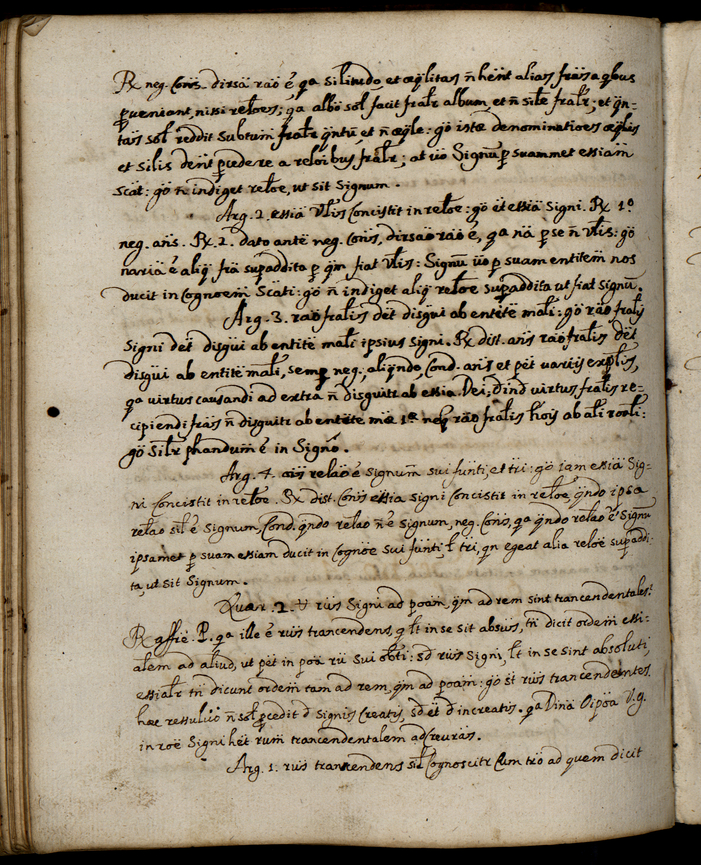 Rx neg. Cons. dirsa rao é qa silitudo, et æqlitas ñ hent alias frās a qbus
proveniant, nisi reloes; qa albo sol facit fralr album, et ñ sile fralr; et qn-
tas sol reddit subtum fralr qntū, et ñ æqle: go istæ denominatioes æqlis
et silis dent pcedere a reloibus fralr; at vo Signū p suammet essiam
scat: go ñ indiget reloe, ut sit signum.
Arg. 2. essia Vlis Concistit in reloe: go et essia Signi. Rx 1º
neg. ans. Rx. 2. dato ante neg. Cons, dirsa rao é, qa na p se ñ Vlis: go
naria é aliq fra supaddita p qm fiat Vlis: Signū vo p suam entitem nos
ducit in Cognoem Scati: go ñ indiget aliq reloe supaddita ut fiat signū.
Arg. 3. rao fralis det disgui ab entite mali: go rao fralis
Signi det disgui ab entite mali ipsius signi. Rx dist. ans rao fralis det
disgui ab entite mali, semp neg., aliqndo, Cond. ans et pet variis explis,
qa virtus causandi ad extra ñ disguitr ab essia Dei; dind virtus fralis re-
cipiendi frās ñ disguitr ab entite mæ 1æ neq rao fralis hois ab ali roali:
go silr phandum é in Signo.
Arg. 4. ois relao é signum sui funti, et tri: go iam essia Sig-
ni Concistit in reloe. Rx dist. Cons essia signi Concistit in reloe, qndo ipsa
relao sil é Signum, Cond. qndo relao ñ é signum, neg. Cons, qa qndo relao é Signū
ipsamet p suam essiam ducit in Cognoe sui funti, l tri, qn egeat alia reloe supaddi-
ta, ut sit Signum.
Quær. 2. V rus Signi ad poam, qm ad rem sint trancendentales?
Rx affie. P. qa ille é rus trancendens, q lt in se sit absus, tñ dicit ordem essi-
alem ad aliud, ut pet in poa ru sui obti: sd rus Signi, lt in se sint absoluti,
essialr tñ dicunt ordem tam ad rem, qm ad poam: go st rus trancendentes.
hæc ressuluo ñ sol pcedit d signis Creatis, sd et d increatis. qa Dina Oipoa V.g.
in roe Signi het rum trancendentalem ad Creuras.
Arg. 1. rus trancendens sil Cognoscitr Cum tro ad quem dicit